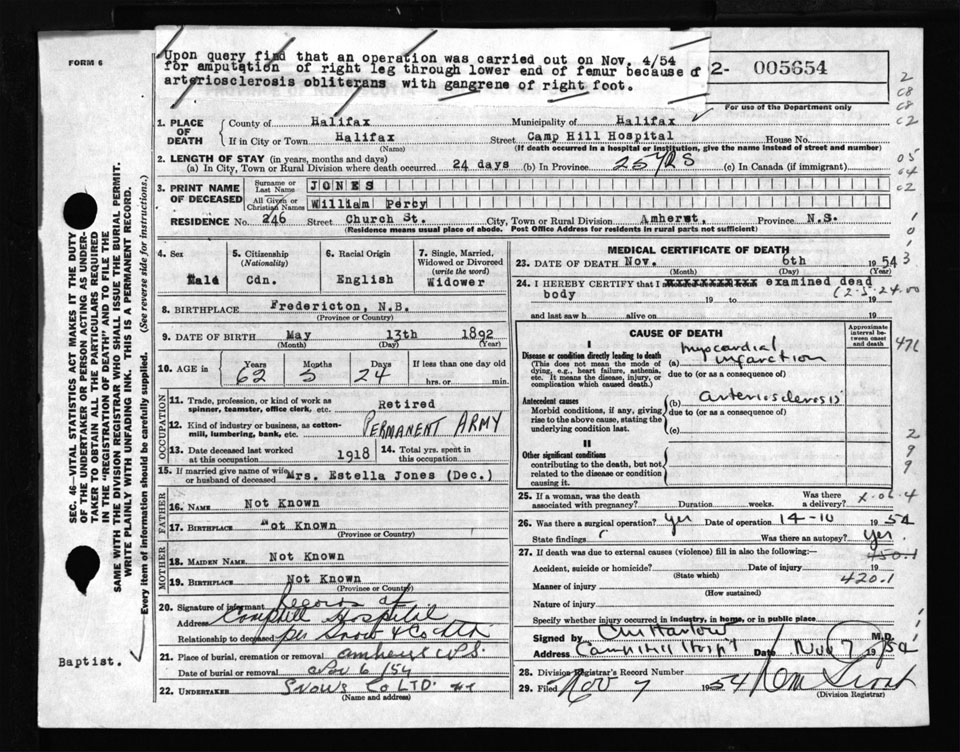 FORM 6
Upon query find that an operation was carried out on Nov. 4/54
for amputation of right leg through lower end of femur because of
arteriosclerosis obliterans with gangrene of right foot.
2- 005654
For use of the Department only
1. PLACE OF DEATH
County of Halifax Municipality of Halifax
If in City or Town Halifax Street Camp Hill Hospital House No.
(Name) (If death occurred in a hospital or institution, give the name instead of street and number)
2. LENGTH OF STAY (in years, months and days)
(a) In City, Town or Rural Division where death occurred 24 days (b) In Province 25 YRS (c) In Canada (if immigrant)
3. PRINT NAME OF DECEASED
Surname or Last Name JONES
All Given or Christian Names William Percy
RESIDENCE No. 246 Street Church St. City, Town or Rural Division Amherst, Province N.S.
(Residence means usual place of abode. Post Office Address for residents in rural parts not sufficient)
4. Sex Male
5. Citizenship (Nationality) Cdn.
6. Racial Origin English
7. Single, Married, Widowed or Divorced (write the word) Widower
8. BIRTHPLACE Fredericton, N.B.
(Province or Country)
9. DATE OF BIRTH May 13th 1892
(Month) (Day) (Year)
10. AGE in Years Months Days If less than one day old
62 5 24 hrs. or min.
OCCUPATION
11. Trade, profession, or kind of work as spinner, teamster, office clerk, etc. Retired
12. Kind of industry or business, as cotton-mill, lumbering, bank, etc. PERMANENT ARMY
13. Date deceased last worked at this occupation 1918 14. Total yrs. spent in this occupation
15. If married give name of wife or husband of deceased Mrs. Estella Jones (Dec.)
FATHER
16. NAME Not Known
17. BIRTHPLACE Not Known
(Province or Country)
MOTHER
18. MAIDEN NAME Not Known
19. BIRTHPLACE Not Known
(Province or Country)
20. Signature of informant Records at
Address Camphill Hospital
Relationship to deceased per Snow & Co Ltd
21. Place of burial, cremation or removal Amherst N.S.
Date of burial or removal Nov 6/54
22. UNDERTAKER SNOWS Co LTD.
(Name and address)
MEDICAL CERTIFICATE OF DEATH
23. DATE OF DEATH Nov. 6th 1954
(Month) (Day) (Year)
24. I HEREBY CERTIFY that I examined dead
body 19 to 19
and last saw h alive on 19
CAUSE OF DEATH
Approximate interval between onset and death
I
Disease or condition directly leading to death
(This does not mean the mode of dying, e.g., heart failure, asthenia, etc. It means the disease, injury, or complication which caused death.)
(a) Myocardial infarction
due to (or as a consequence of)
Antecedent causes
Morbid conditions, if any, giving rise to the above cause, stating the underlying condition last.
(b) Arteriosclerosis
due to (or as a consequence of)
(c)
II
Other significant conditions
contributing to the death, but not related to the disease or condition causing it.
25. If a woman, was the death associated with pregnancy? Duration weeks. Was there a delivery?
26. Was there a surgical operation? yes Date of operation 14-10 1954
State findings Was there an autopsy? Yes
27. If death was due to external causes (violence) fill in also the following:—
450.1
Accident, suicide or homicide? Date of injury 19
(State which)
420.1
Manner of injury
(How sustained)
Nature of injury
Specify whether injury occurred in industry, in home, or in public place
Signed by M.D.
Address Camphill Hospit Date Nov 7 1954
28. Division Registrar's Record Number
29. Filed Nov 7 1954
(Division Registrar)
SEC. 46—VITAL STATISTICS ACT MAKES IT THE DUTY
OF THE UNDERTAKER OR PERSON ACTING AS UNDER-
TAKER TO OBTAIN ALL THE PARTICULARS REQUIRED
IN THE "REGISTRATION OF DEATH" AND TO FILE THE
SAME WITH THE DIVISION REGISTRAR WHO SHALL ISSUE THE BURIAL PERMIT.
WRITE PLAINLY WITH UNFADING INK. THIS IS A PERMANENT RECORD.
Every item of information should be carefully supplied. (See reverse side for instructions.)
Baptist.
2
C8
C8
C2
05
04
02
3
471
2
9
9